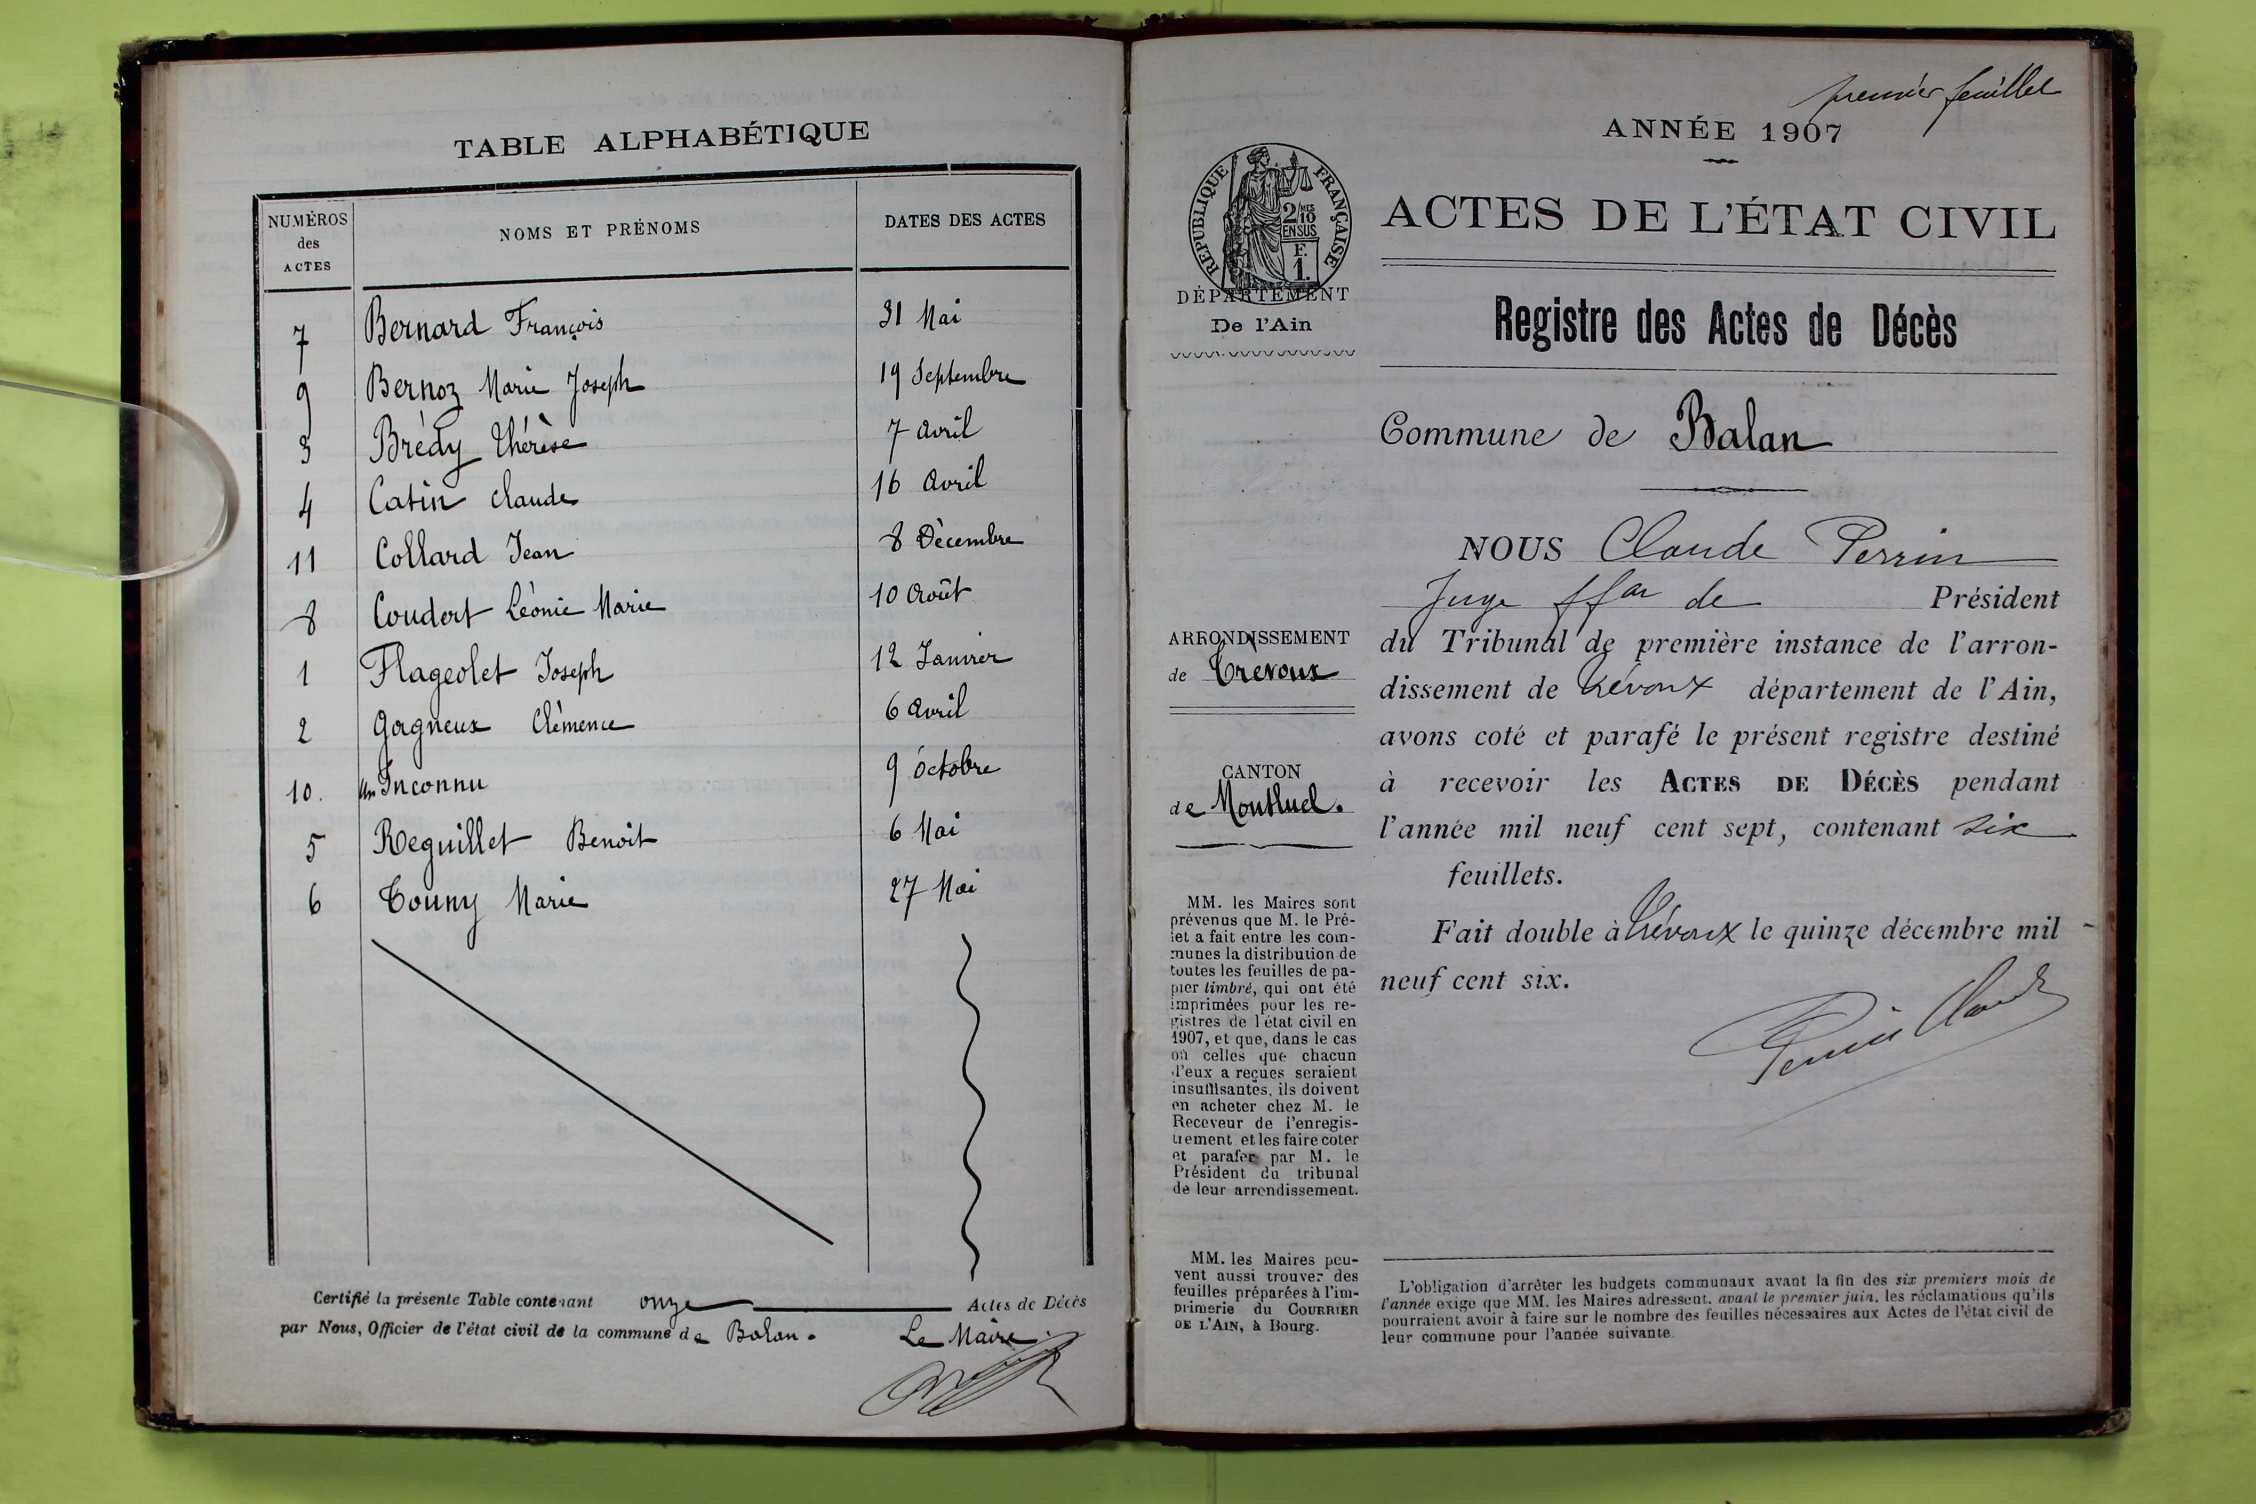 TABLE ALPHABÉTIQUE
NUMÉROS des ACTES NOMS ET PRÉNOMS DATES DES ACTES
7 Bernard François 31 Mai
9 Bernoz Marie Joseph 19 Septembre
3 Brédy Thérèse 7 Avril
4 Catin Claude 16 Avril
11 Collard Jean 8 Décembre
8 Coudert Léonie Marie 10 Août
1 Flageolet Joseph 12 Janvier
2 Gagneux Clémence 6 Avril
10. Un Inconnu 9 Octobre
5 Reguillet Benoit 6 Mai
6 Touny Marie 27 Mai
Certifié la présente Table contenant onze Actes de Décès
par Nous, Officier de l'état civil de la commune de Balan. Le Maire
premier feuillet
ANNÉE 1907
RÉPUBLIQUE FRANÇAISE
2/10 MES
EN SUS
F.
1.
DÉPARTEMENT
De l'Ain
ACTES DE L'ÉTAT CIVIL
Registre des Actes de Décès
Commune de Balan
ARRONDISSEMENT
de Trevoux
CANTON
de Montluel.
MM. les Maires sont
prévenus que M. le Pré-
fet a fait entre les com-
munes la distribution de
toutes les feuilles de pa-
pier timbré, qui ont été
imprimées pour les re-
gistres de l'état civil en
1907, et que, dans le cas
où celles que chacun
d'eux a reçues seraient
insuffisantes, ils doivent
en acheter chez M. le
Receveur de l'enregis-
trement et les faire coter
et parafer par M. le
Président du tribunal
de leur arrondissement.
MM. les Maires peu-
vent aussi trouver des
feuilles préparées à l'im-
primerie du COURRIER
DE L'AIN, à Bourg.
NOUS Claude Perrin
Juge ffon de Président
du Tribunal de première instance de l'arron-
dissement de Trévoux département de l'Ain,
avons coté et parafé le présent registre destiné
à recevoir les ACTES DE DÉCÈS pendant
l'année mil neuf cent sept, contenant six
feuillets.
Fait double à Trévoux le quinze décembre mil
neuf cent six.
Perrin Claude
L'obligation d'arrêter les budgets communaux avant la fin des six premiers mois de
l'année exige que MM. les Maires adressent, avant le premier juin, les réclamations qu'ils
pourraient avoir à faire sur le nombre des feuilles nécessaires aux Actes de l'état civil de
leur commune pour l'année suivante.